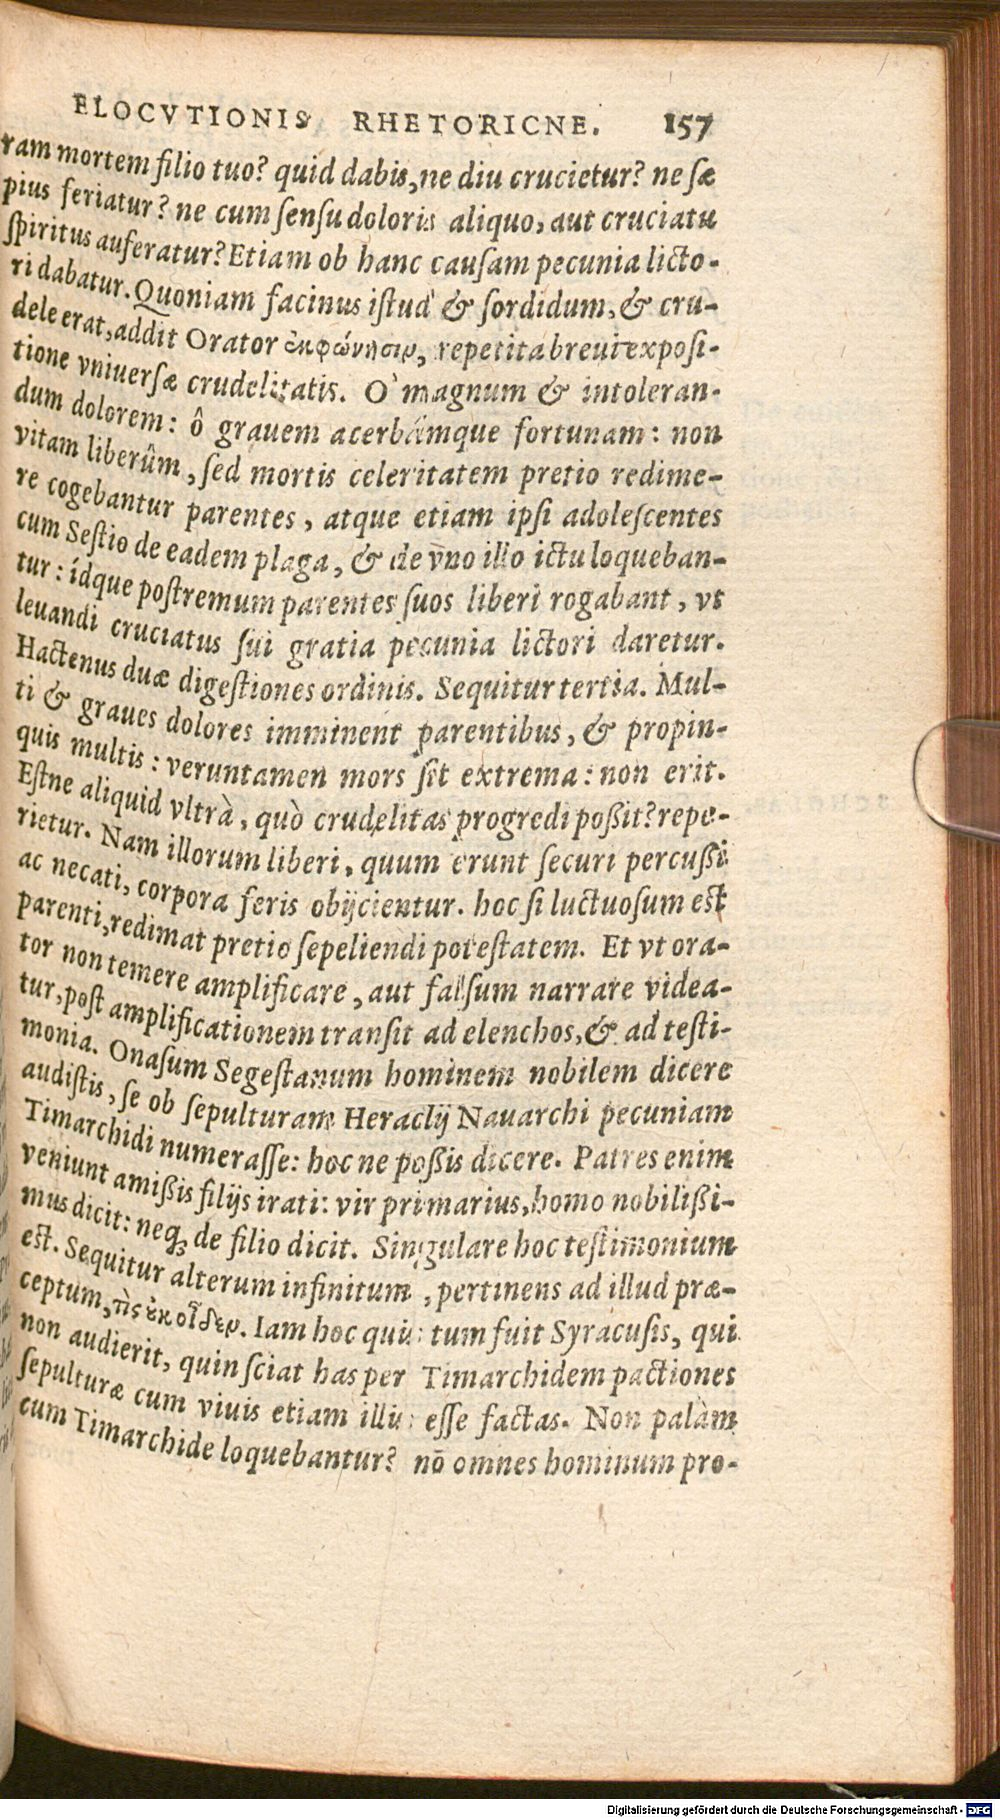 ELOCVTIONIS RHETORICNE. 157
ram mortem filio tuo? quid dabis, ne diu crucietur? ne sæ
pius feriatur? ne cum sensu doloris aliquo, aut cruciatu
spiritus auferatur? Etiam ob hanc causam pecunia licto-
ri dabatur. Quoniam facinus istud & sordidum, & cru-
dele erat, addit Orator ἐκφώνησιν, repetita breui exposi-
tione vniuersæ crudelitatis. O` magnum & intoleran-
dum dolorem: ô grauem acerbámque fortunam: non
vitam liberûm, sed mortis celeritatem pretio redime-
re cogebantur parentes, atque etiam ipsi adolescentes
cum Sestio de eadem plaga, & de vno illo ictu loqueban-
tur: ídque postremum parentes suos liberi rogabant, vt
leuandi cruciatus sui gratia pecunia lictori daretur.
Hactenus duæ digestiones ordinis. Sequitur tertia. Mul-
ti & graues dolores imminent parentibus, & propin-
quis multis: veruntamen mors sit extrema: non erit.
Estne aliquid vltrà, quò crudelitas progredi poßit? repe-
rietur. Nam illorum liberi, quum erunt securi percußi
ac necati, corpora feris obijcientur. hoc si luctuosum est
parenti, redimat pretio sepeliendi potestatem. Et vt ora-
tor non temere amplificare, aut falsum narrare videa-
tur, post amplificationem transit ad elenchos, & ad testi-
monia. Onasum Segestanum hominem nobilem dicere
audistis, se ob sepulturam Heraclij Nauarchi pecuniam
Timarchidi numerasse: hoc ne poßis dicere. Patres enim
veniunt amißis filijs irati: vir primarius, homo nobilißi-
mus dicit: neq; de filio dicit. Singulare hoc testimonium
est. Sequitur alterum infinitum, pertinens ad illud præ-
ceptum, τὶς ἐκ οἶδεν. Iam hoc quis tum fuit Syracusis, qui
non audierit, quin sciat has per Timarchidem pactiones
sepulturæ cum viuis etiam illis esse factas. Non palàm
cum Timarchide loquebantur? nõ omnes hominum pro-
Digitalisierung gefördert durch die Deutsche Forschungsgemeinschaft - DFG